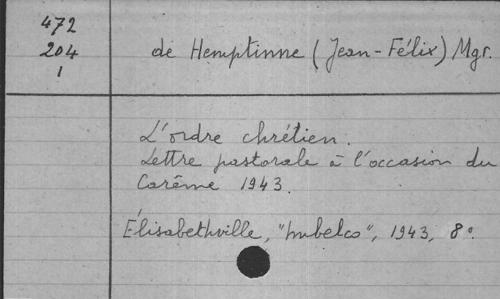 472
204
1
de Hemptinne (Jean-Félix) Mgr.
L'ordre chrétien.
Lettre pastorale à l'occasion du
Carême 1943.
Élisabethville, "Imbelco", 1943, 8°.